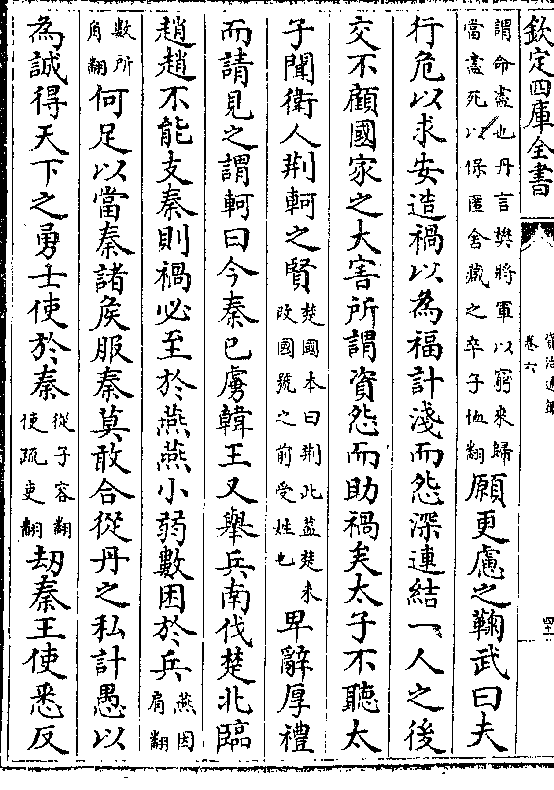 欽定四庫全書
資治通鑑
卷六
謂命盡也丹言樊將軍以窮來歸
當盡死以保匿舍藏之卒子恤翻
願更慮之鞠武曰夫
行危以求安造禍以為福計淺而怨深連結一人之後
交不顧國家之大害所謂資怨而助禍矣太子不聽太
子聞衛人荆軻之賢
楚國本曰荆此蓋楚未
改國號之前受姓也
卑辭厚禮
而請見之謂軻曰今秦已虜韓王又舉兵南伐楚北臨
趙趙不能支秦則禍必至於燕燕小弱數困於兵
燕因
肩翻
數所
角翻
何足以當秦諸侯服秦莫敢合從丹之私計愚以
為誠得天下之勇士使於秦
從子容翻
使疏吏翻
劫秦王使悉反